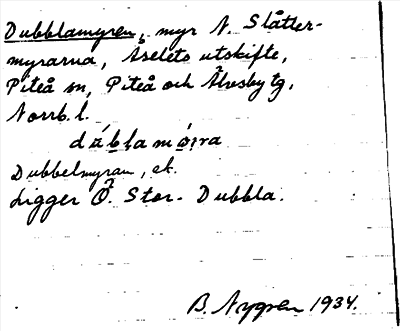 Dubblamyren, myr N. Slåtter-
myrarna, Åselets utskifte,
Piteå sn, Piteå och Älvsby tg,
Norrb. l.
Dubbelmyran, ek.
Ligger Ö. Stor-Dubbla.
B. Nygren 1934.